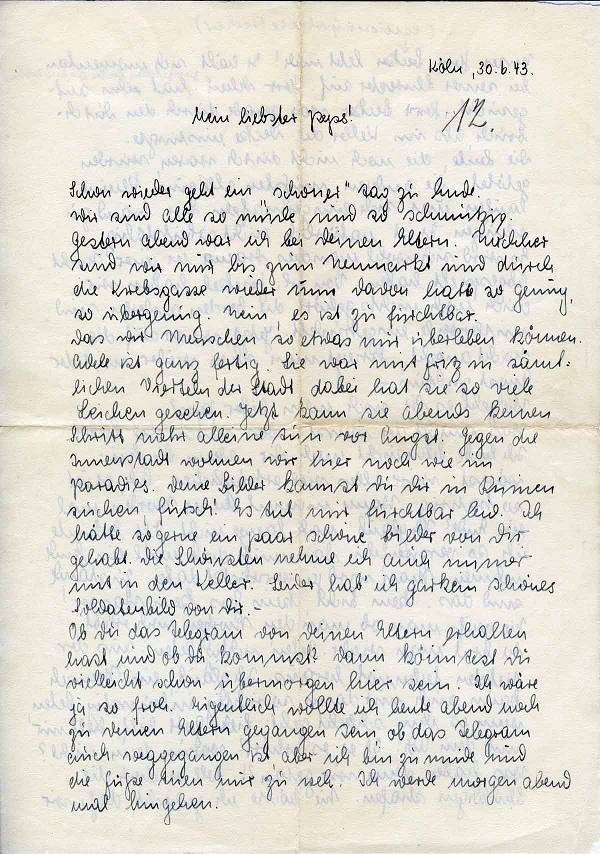 Köln, 30.6.43.
12.
Mein liebster Peps!
Schon wieder geht ein "schöner" Tag zu Ende.
Wir sind alle so müde und so schmutzig.
Gestern abend war ich bei Deinen Eltern.
sind wir nur bis zum Neumarkt und durch
die Krebsgasse wieder um. Davon hatte so genug,
so übergenug. Nein, es ist zu fürchtbar.
Das wir Menschen so etwas nur überleben können.
Adele ist ganz fertig. Sie war mit Fritz in sämt-
lichen Vierteln der Stadt dabei hat sie so viele
Leichen gesehen. Jetzt kann sie abends keinen
Schritt mehr alleine tun vor Angst. Gegen die
Innenstadt wohnen wir hier noch wie im
Paradies. Deine Bilder kannst Du Dir in Ruinen
suchen, futsch! Es tut mir furchtbar leid. Ich
hätte so gerne ein paar schöne Bilder von Dir
gehabt. Die Schönsten nehme ich auch immer
mit in den Keller. Leider hab' ich garkein schönes
Soldatenbild von Dir.-
Ob Du das Telegram von Deinen Eltern erhalten
hast und ob Du kommst? Dann könntest Du
vielleicht schon übermorgen hier sein. Ich wäre
ja so froh. Eigentlich wollte ich heute abend noch
zu Deinen Eltern gegangen sein ob das Telegram
auch weggegangen ist, aber ich bin zu müde und
die Füße tuen mir zu weh. Ich werde morgen abend
mal hingehen.